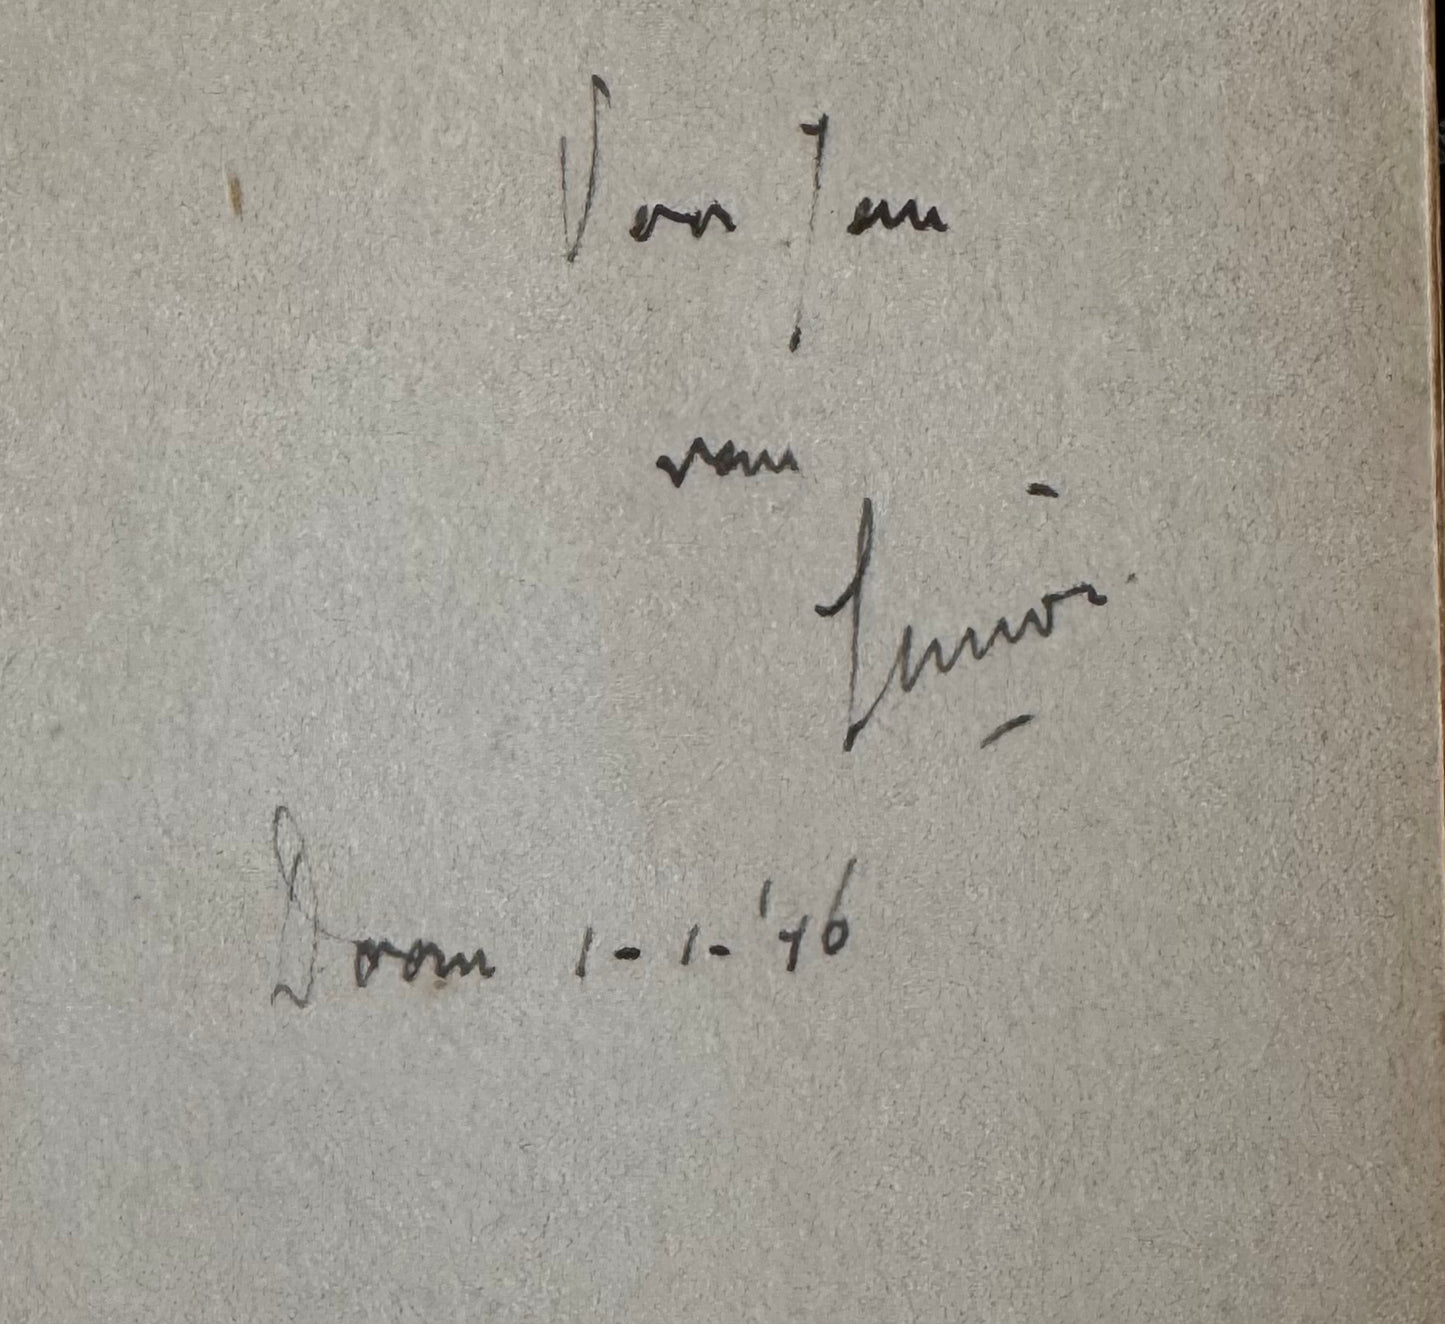 Voor Jan
van
Junior
Doorn 1-1-'46